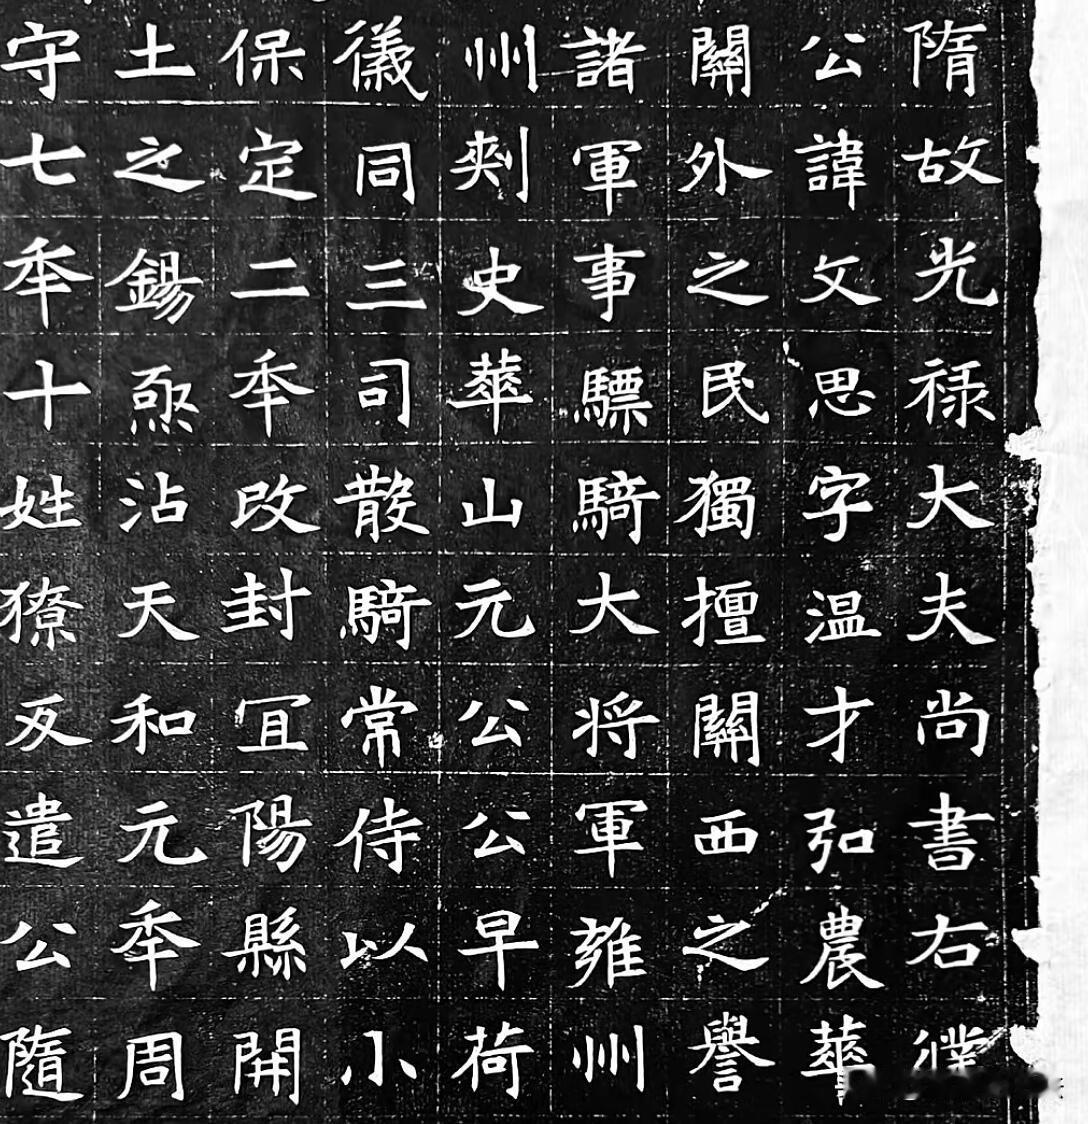 隋故光禄大夫尚書右僕
公諱文思字温才弘農華
關外之民獨擅關西之譽
諸軍事驃騎大将軍雍州
州刾史華山元公公早荷
儀同三司散騎常侍以小
保定二年改封冝陽縣開
土之錫亟沾天和元年周
守七年十姓獠反遣公隨